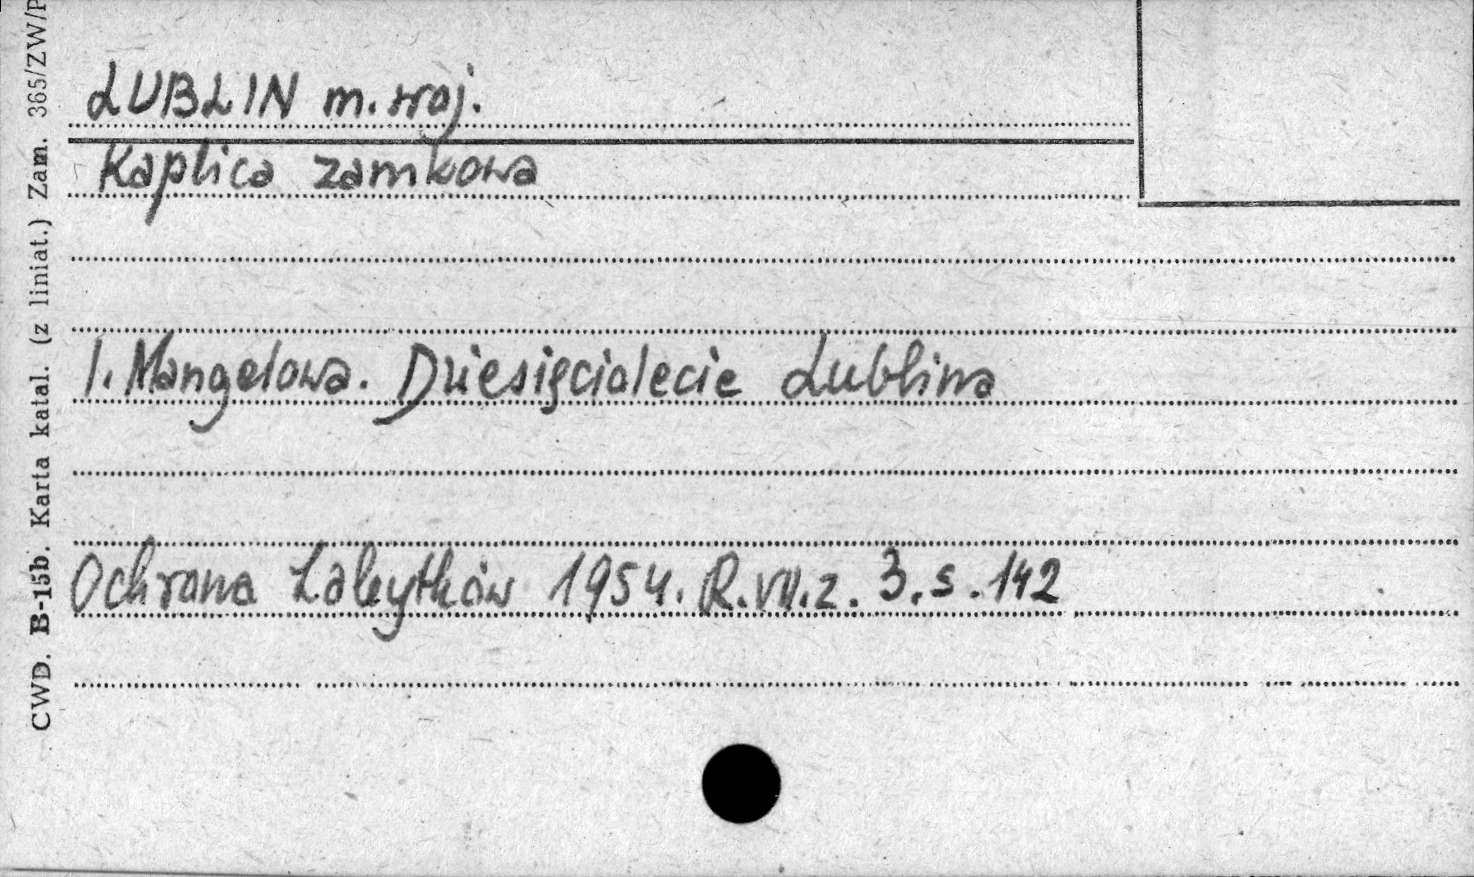 LUBLIN m. woj.
Kaplica zamkowa
I. Mangelowa. Dziesięciolecie Lublina
Ochrona Zabytków 1954. R. VII. z. 3. s. 142
CWD. B-15b. Karta katal. (z liniat.) Zam. 365/ZW/P